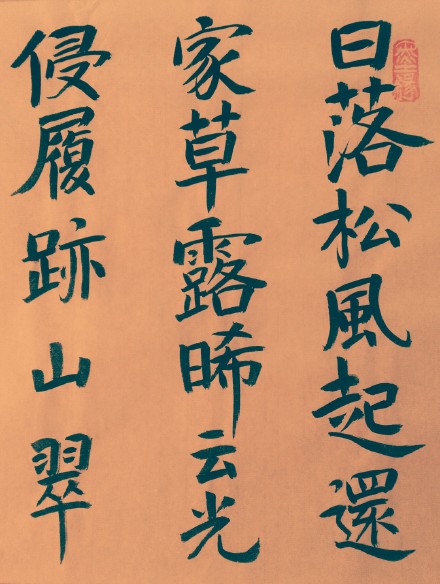 日落松風起還
家草露晞云光
侵履跡山翠